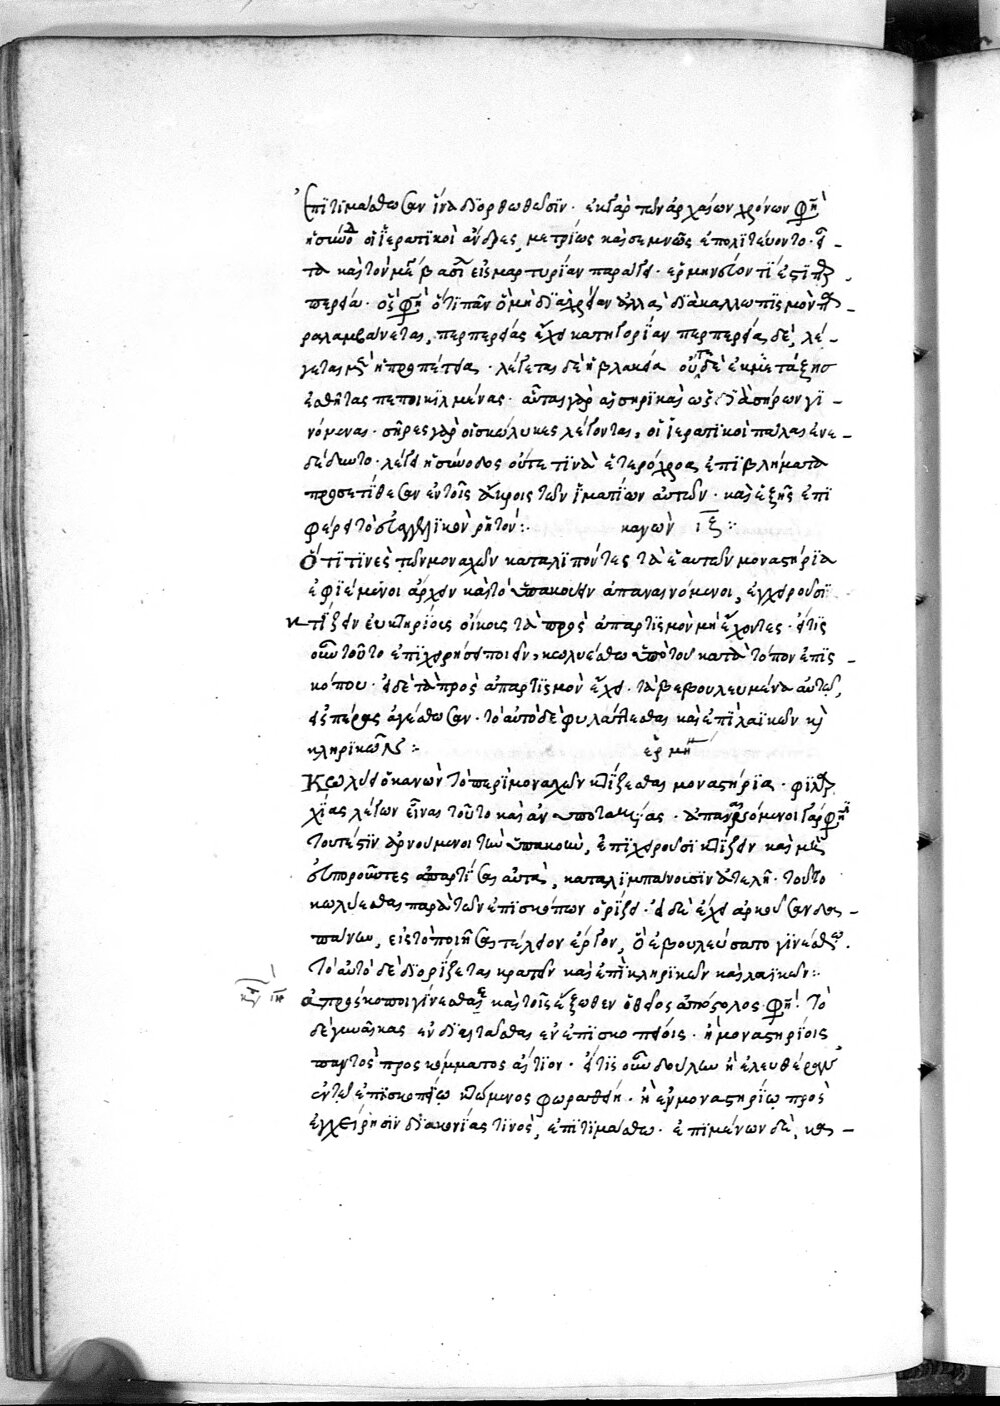 Ἐπιτιμάσθωσαν ἵνα διορθωθῶσιν· ἐκ γὰρ τῶν ἀρχαίων χρόνων φη(σὶν)
ἡ σύνοδ(ος) οἱ ἱερατικοὶ ἄνδρες, μετρίως καὶ σεμνῶς ἐπολιτεύοντο·
τὰ καὶ τὸν μέγ(αν) βασί(λειον) εἰς μαρτυρίαν παράγει· ἑρμηνεύοντι ἐστὶ
περπερεία· ὅς φη(σὶ) ὅτι πᾶν ὃ μὴ διὰ χρείαν ἀλλὰ διὰ καλλωπισμὸν πα
ραλαμβάνεται, περπερείας ἔχει κατηγορίαν περπερεία δὲ, λέ-
γεται καὶ ἡ προπέτεια· λέγεται δὲ ἡ βλακεία οὔτε δὲ ἐκ μετάξης
ἐσθῆτας πεποικιλμένας· αὗται γὰρ αἱ σηρικαὶ ὡς διὰ σήρων γι-
νόμεναι· σῆρες γὰρ οἱ σκώληκες λέγονται, οἱ ἱερατικοὶ πάλαι ἐνε-
δέδυντο· λέγει ἡ σύνοδος οὔτε τινὰ ἑτερόχροα ἐπιβλήματα
προσετίθεσαν ἐν τοῖς ἄκροις τῶν ἱματίων αὐτῶν· καὶ ἑξῆς ἐπι
φέρει τὸ εὐαγγελικὸν ῥητόν:· κανὼν ιζ:·
Ὅτι τινὲς τῶν μοναχῶν καταλιπόντες τὰ ἑαυτῶν μοναστήρια
ἐφιέμενοι ἄρχειν καὶ τὸ ὑπακούειν ἀπαναινόμενοι, ἐγχειροῦσι
κτίζειν εὐκτηρίους οἴκους τὰ πρὸς ἀπαρτισμὸν μὴ ἔχοντες· εἴ τις
οὖν τοῦτο ἐπιχειρήσει ποιεῖν, κωλυέσθω ὑπὸ τοῦ κατὰ τόπον ἐπισ-
κόπου· εἰ δὲ τὰ πρὸς ἀπαρτισμὸν ἔχει· τὰ βεβουλευμένα αὐτῷ,
εἰς πέρας ἀγέσθωσαν· τὸ αὐτὸ δὲ φυλάττεσθαι καὶ ἐπὶ λαϊκῶν κ(αὶ)
κληρικῶν:· ἑρμη
Κωλύει ὁ κανὼν τὸ περὶ μοναχῶν κτίζεσθαι μοναστήρια· φιλαρ
χίας λέγων εἶναι τοῦτο καὶ ἀνυποταξίας· ἀπαναινόμενοι γάρ φη(σὶ)
τουτέστιν ἀρνούμενοι τὴν ὑπακοὴν, ἐπιχειροῦσι κτίζειν καὶ μὴ
εὐποροῦντες ἀπαρτίσαι αὐτὰ, καταλιμπάνουσιν ἀτελῆ· τοῦτο
κωλύεσθαι παρὰ τῶν ἐπισκόπων ὁρίζει· εἰ δὲ ἔχει ἀρκοῦσαν δα-
πάνην, εἰς τὸ ποιῆσαι τέλειον ἔργον, ὃ ἐβουλεύσατο γινέσθω.
Τὸ αὐτὸ δὲ διορίζεται κρατεῖν καὶ ἐπὶ κληρικῶν καὶ λαϊκῶν:·
καν ιη ἀπρόσκοποι γίνεσθαι καὶ τοῖς ἔξωθεν ὁ θεῖος ἀπόστολος φη(σί)· Τὸ
δὲ γυναῖκας ἐνδιαιτᾶσθαι ἐν ἐπισκοπείοις· ἢ μοναστηρίοις
παντὸς προσκόμματος αἴτιον· εἴ τις οὖν δούλην ἢ ἐλευθέραν
ἐν τῷ ἐπισκοπείῳ κτώμενος φωραθείη· ἢ ἐν μοναστηρίῳ πρὸς
ἐγχείρησιν διακονίας τινὸς, ἐπιτιμάσθω· ἐπιμένων δὲ, κα-